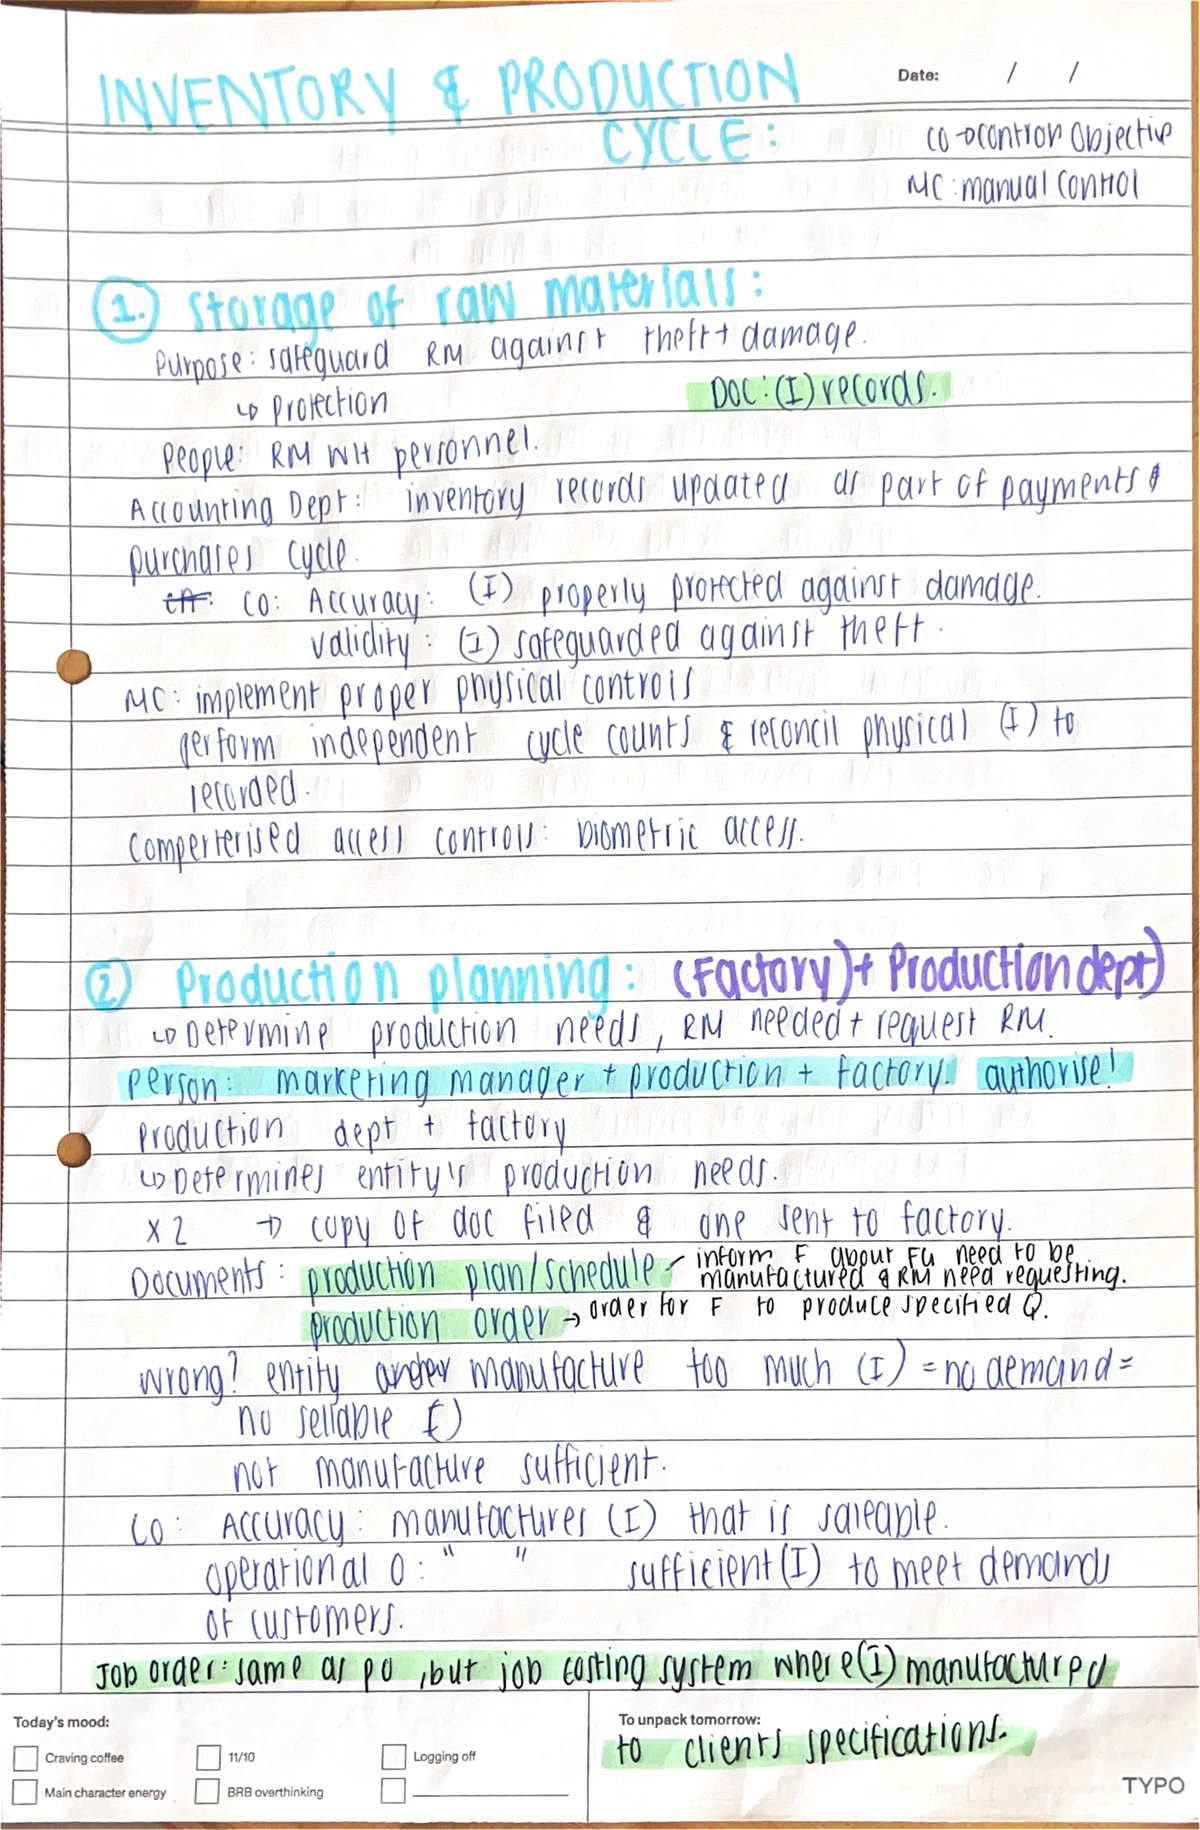 INVENTORY & PRODUCTION
CYCLE:
Date: / /
CO → control Objective
MC: manual control
1. Storage of raw materials:
Purpose: safeguard RM against theft + damage.
↳ Protection
DOC: (I) records.
People: RM WH personnel.
Accounting Dept: inventory records updated as part of payments &
purchases cycle.
CO: Accuracy: (I) properly protected against damage.
validity: (I) safeguarded against theft.
MC: implement proper physical controls
perform independent cycle counts & reconcil physical (I) to
recorded.
Comperterised access controls: Biometric access.
2 Production planning: (Factory) + Production dept)
↳ Determine production needs, RM needed + request RM.
person: marketing manager + production + factory. authorise!
production dept + factory
↳ Determines entity's production needs.
x2 → copy of doc filed & one sent to factory.
Documents: production plan/schedule - inform F about FG need to be
manufactured & RM need requesting.
production order → order for F to produce specified Q.
wrong? entity manufacture too much (I) = no demand =
no sellable (I)
not manufacture sufficient.
CO: Accuracy: manufactures (I) that is saleable.
operational O: " " sufficient (I) to meet demands
of customers.
Job order: same as po, but job costing system where (I) manufactured
to clients specifications.
Today's mood:
Craving coffee
11/10
Logging off
Main character energy
BRB overthinking
To unpack tomorrow:
TYPO